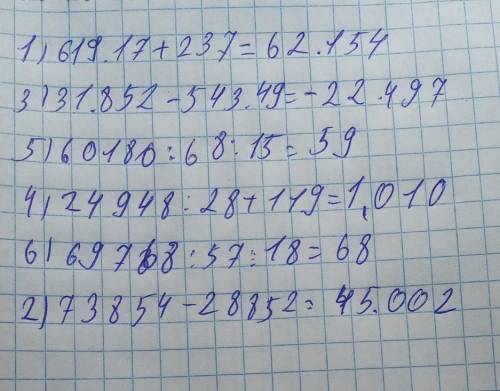 1) 619.17+237=62.154
3) 31.852-543.49=-22.497
5) 60180:68:15=59
4) 24948:28+119=1,010
6) 69768:57:18=68
2) 73854-28852=45.002